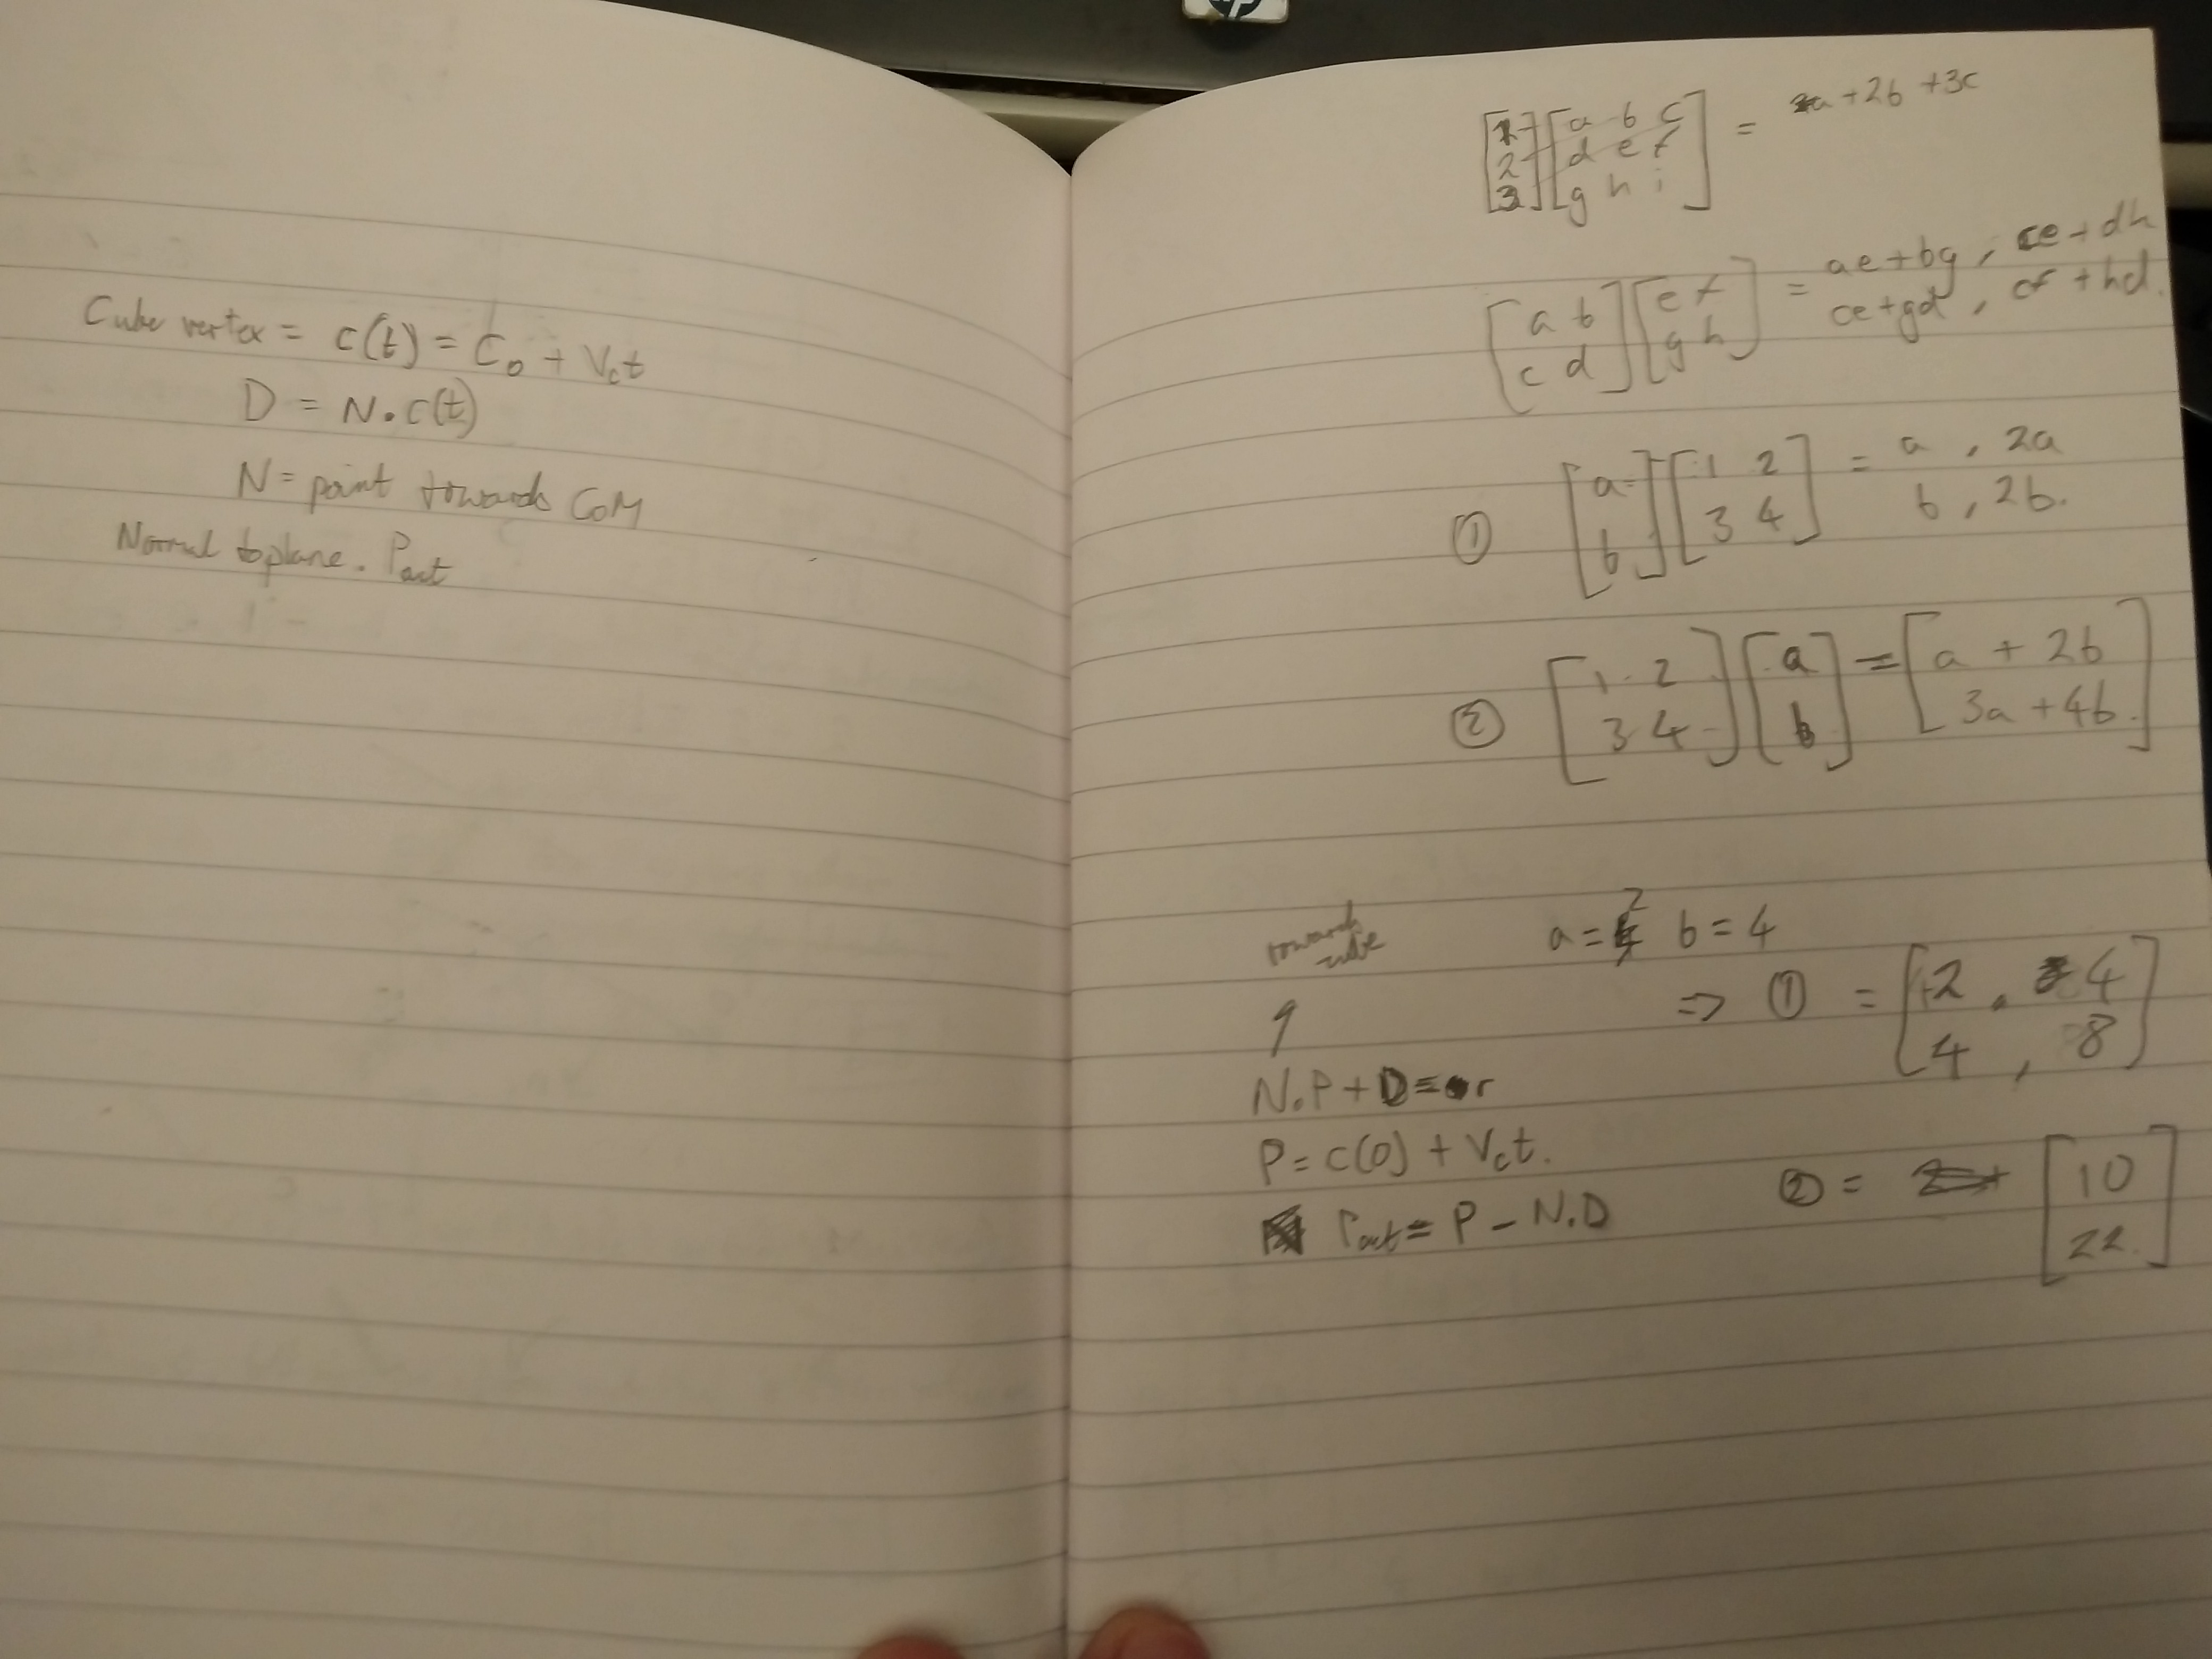 Cube vertex = c(t) = C₀ + Vct
D = N.c(t)
N = point towards CoM
Normal to plane. Pact
[1 2 3] [a b c
d e f
g h i] = a + 2b + 3c
[a b
c d] [e f
g h] = ae + bg, ce + dh
ce + gd, cf + hd.
① [a
b] [1 2
3 4] = a, 2a
b, 2b.
② [1 2
3 4] [a
b] = [a + 2b
3a + 4b.]
a = 2 b = 4
⇒ ① = [2, 4
4, 8]
② = [10
22.]
towards
N.P + D = r
P = c(0) + Vct.
Pact = P - N.D